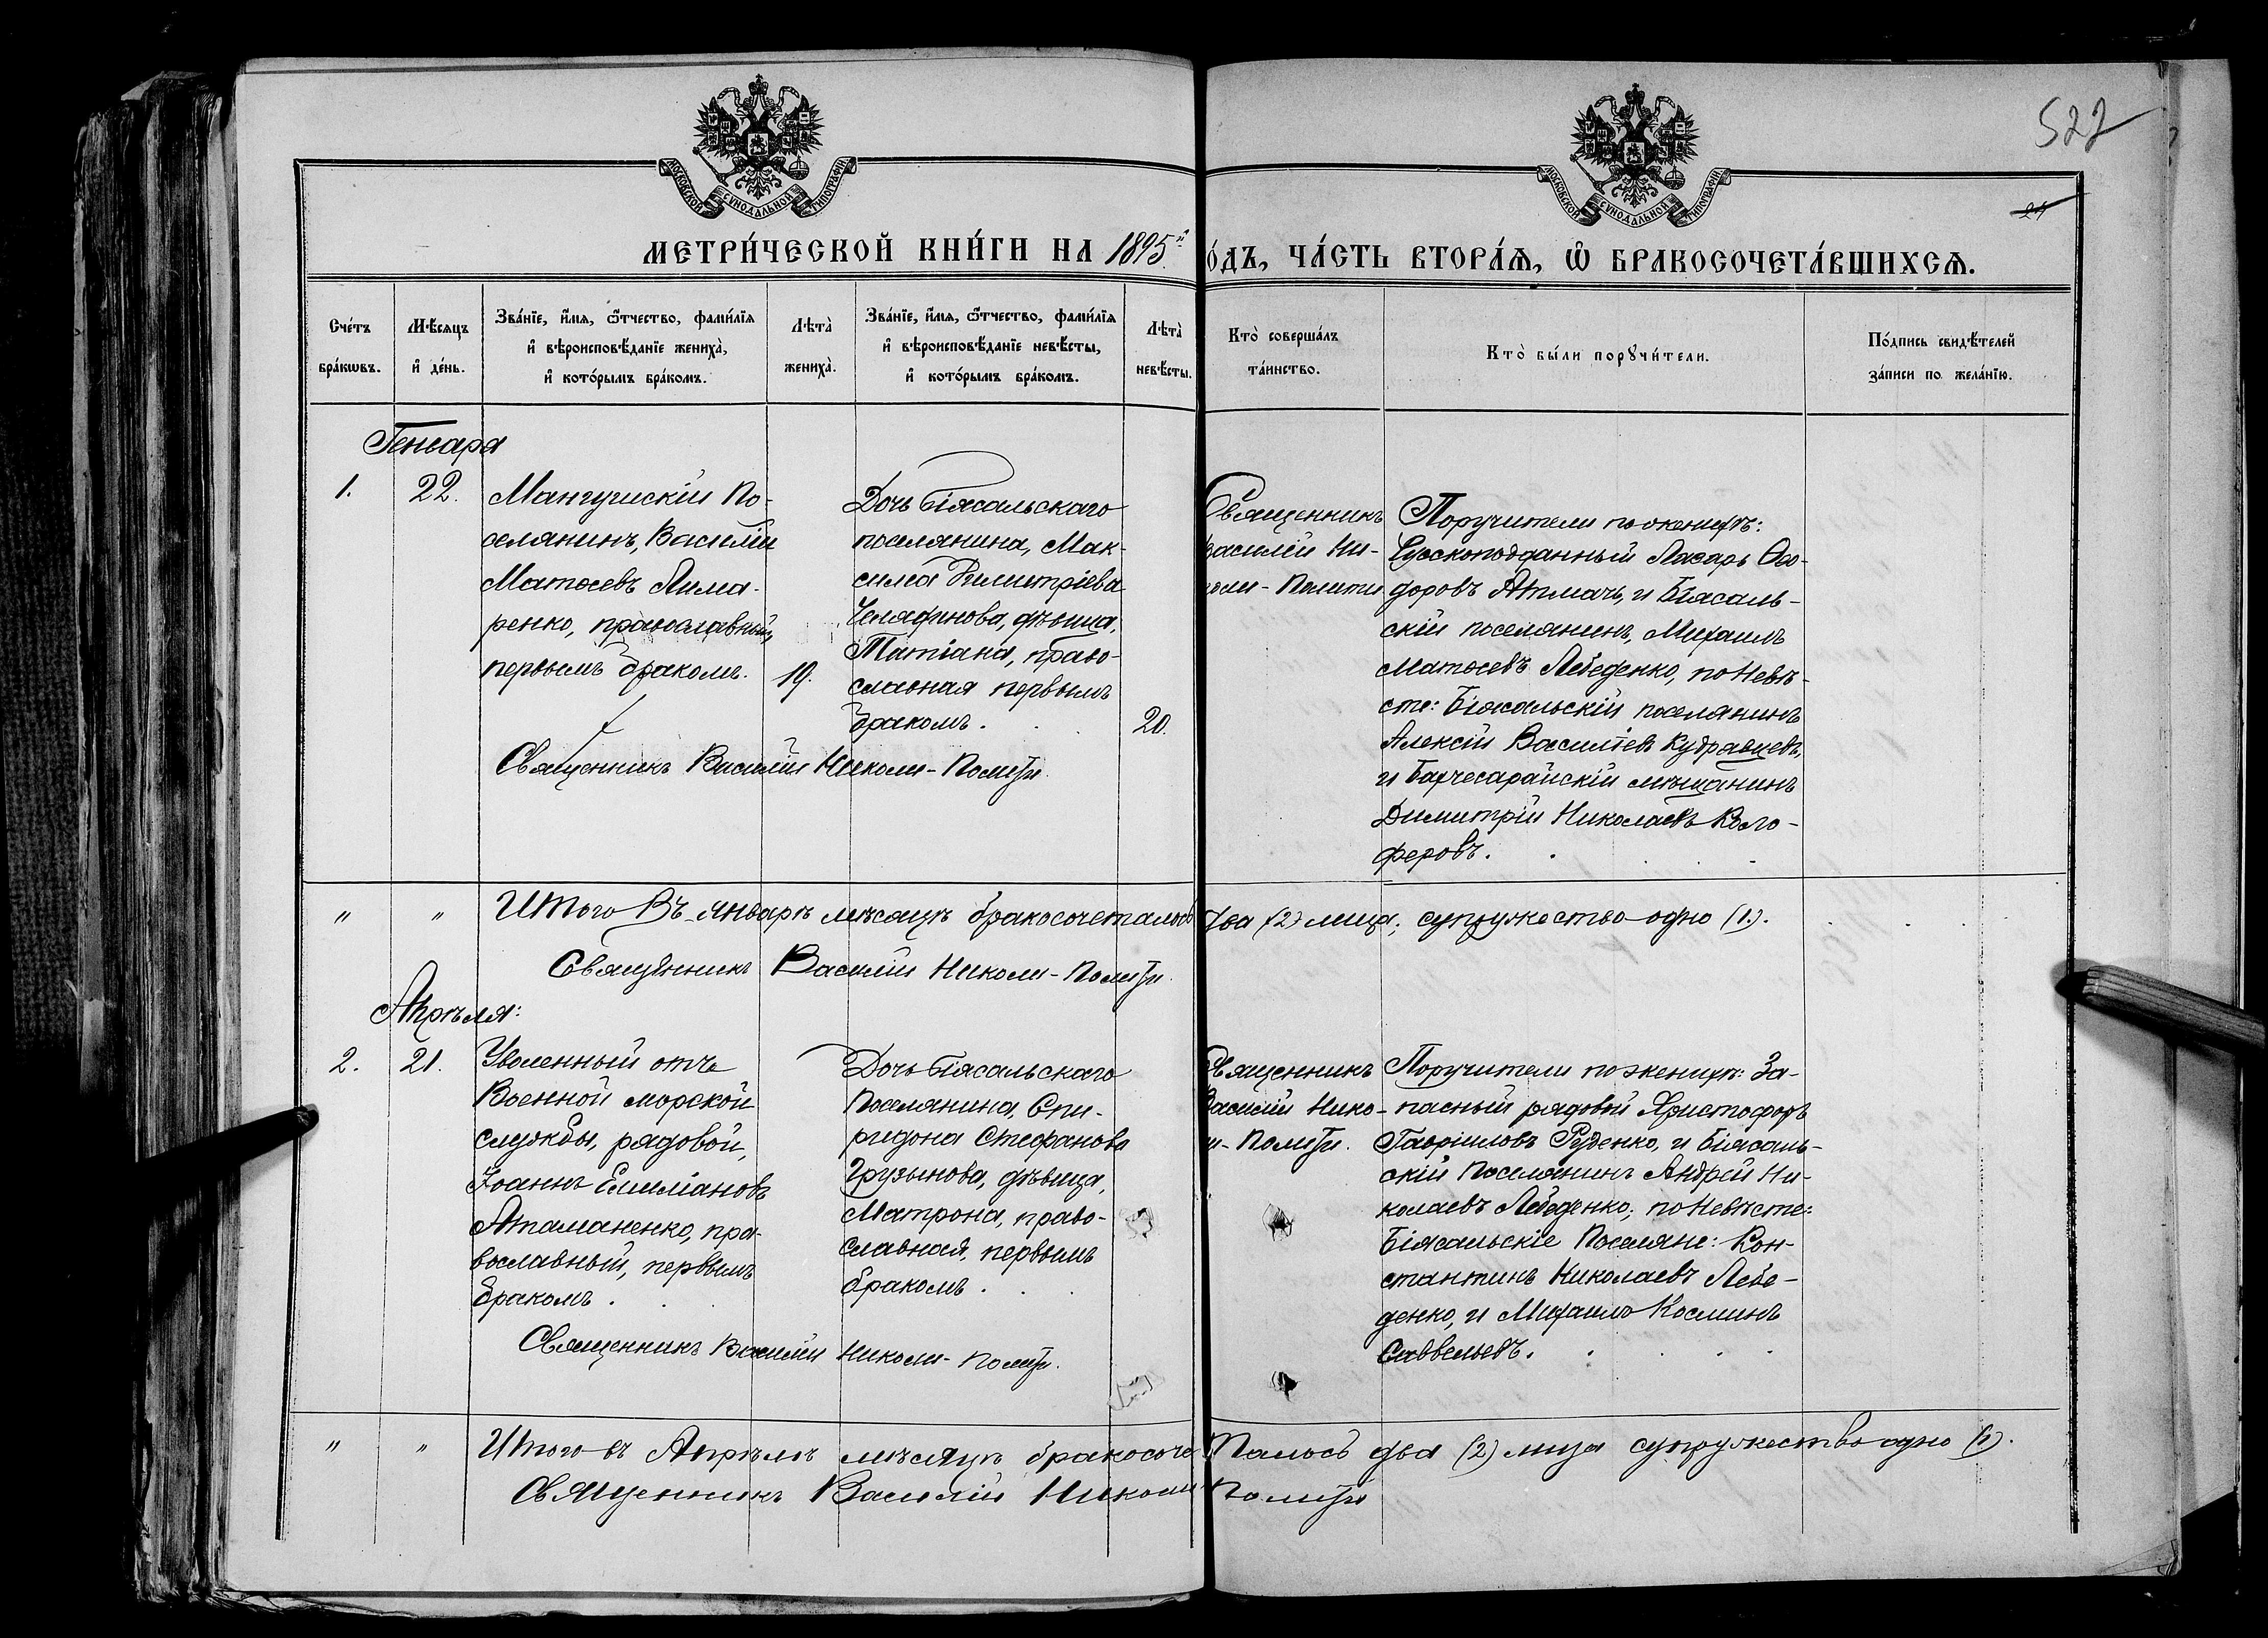 527
24
МОСКОВСКОЙ СѴНОДАЛЬНОЙ ТИПОГРАФІИ
МОСКОВСКОЙ СѴНОДАЛЬНОЙ ТИПОГРАФІИ
МЕТРИ́ЧЕСКОЙ КНИ́ГИ НА 1895й
О́ДЪ, ЧА́СТЬ ВТОРА́Ѧ, Ѽ БРАКОСОЧЕТА́ВШИХСѦ.
Сче́тъ бра́кѡвъ.
Мѣ́сѧцъ и҆ де́нь.
Зва́нїе, и҆́мѧ, ѻ҆́тчество, фами́лїѧ и҆ вѣроисповѣ́данїе жениха̀, и҆ кото́рымъ бра́комъ.
Лѣта̀ жениха̀.
Зва́нїе, и҆́мѧ, ѻ҆́тчество, фами́лїѧ и҆ вѣроисповѣ́данїе невѣ́сты, и҆ кото́рымъ бра́комъ.
Лѣта̀ невѣ́сты.
Кто̀ соверша́лъ та́инство.
Кто̀ бы́ли порꙋчи́тели.
По́дпись свидѣ́телей за́писи по жела́нїю.
Генваря
1.
22.
Мангушскій По-
селянинъ, Василій
Матѳеевъ Лима-
ренко, православный,
первымъ бракомъ.
19.
Дочь Біясальскаго
поселянина, Мак-
сима Димитріева
Челядинова, дѣвица,
Татіана, право-
славная первымъ
бракомъ.
20.
Священникъ
Василій Ни-
коли-Полити
Поручители по женихѣ:
Русскоподданный Лазарь Ѳео-
доровъ Атмачъ, и Біясаль-
скій поселянинъ, Михаилъ
Матѳеевъ Лебеденко, по Невѣ-
сте: Біясальскій поселянинъ
Алексій Василіев Кудрявцевъ,
и Бахчесарайскій мѣщанинъ
Димитрій Николаевъ Коло-
феровъ.
Священникъ Василій Николи-Полити
" " Итого Въ январѣ мѣсяцѣ бракосочеталось два (2) лица, супружество-одно (1).
Священникъ Василій Николи-Полити
Апрѣля:
2.
21.
Уволенный отъ
Военной морской
службы, рядовой,
Іоаннъ Емиліановъ
Атаманенко, пра-
вославный, первымъ
бракомъ.
Дочь Біясальскаго
Поселянина, Спи-
ридона Стефанова
Грузынова, дѣвица,
Матрона, право-
славная, первымъ
бракомъ.
Священникъ
Василій Нико-
ли-Полити.
Поручители по женихѣ: За-
пасный рядовой Христофоръ
Гавріиловъ Руденко, и Біясаль-
скій Поселянинъ Андрей Ни-
колаевъ Лебеденко; по Невѣсте:
Біясальскіе Поселяне: Кон-
стантинъ Николаевъ Лебе-
денко, и Михаилъ Косминъ
Саввельевъ.
Священникъ Василій Николи-Полити.
" " Итого въ Апрѣлѣ мѣсяцѣ бракосочеталось два (2) лица супружество одно (1).
Священникъ Василій Николи Полити